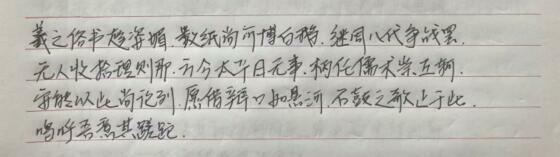 羲之俗书趁姿媚.数纸尚可博白鹅.继周八代争战罢.
无人收拾理则那.方今太平日无事.柄任儒术崇丘轲.
安能以此尚论列.愿借辩口如悬河.石鼓之歌止于此.
呜呼吾意其蹉跎.